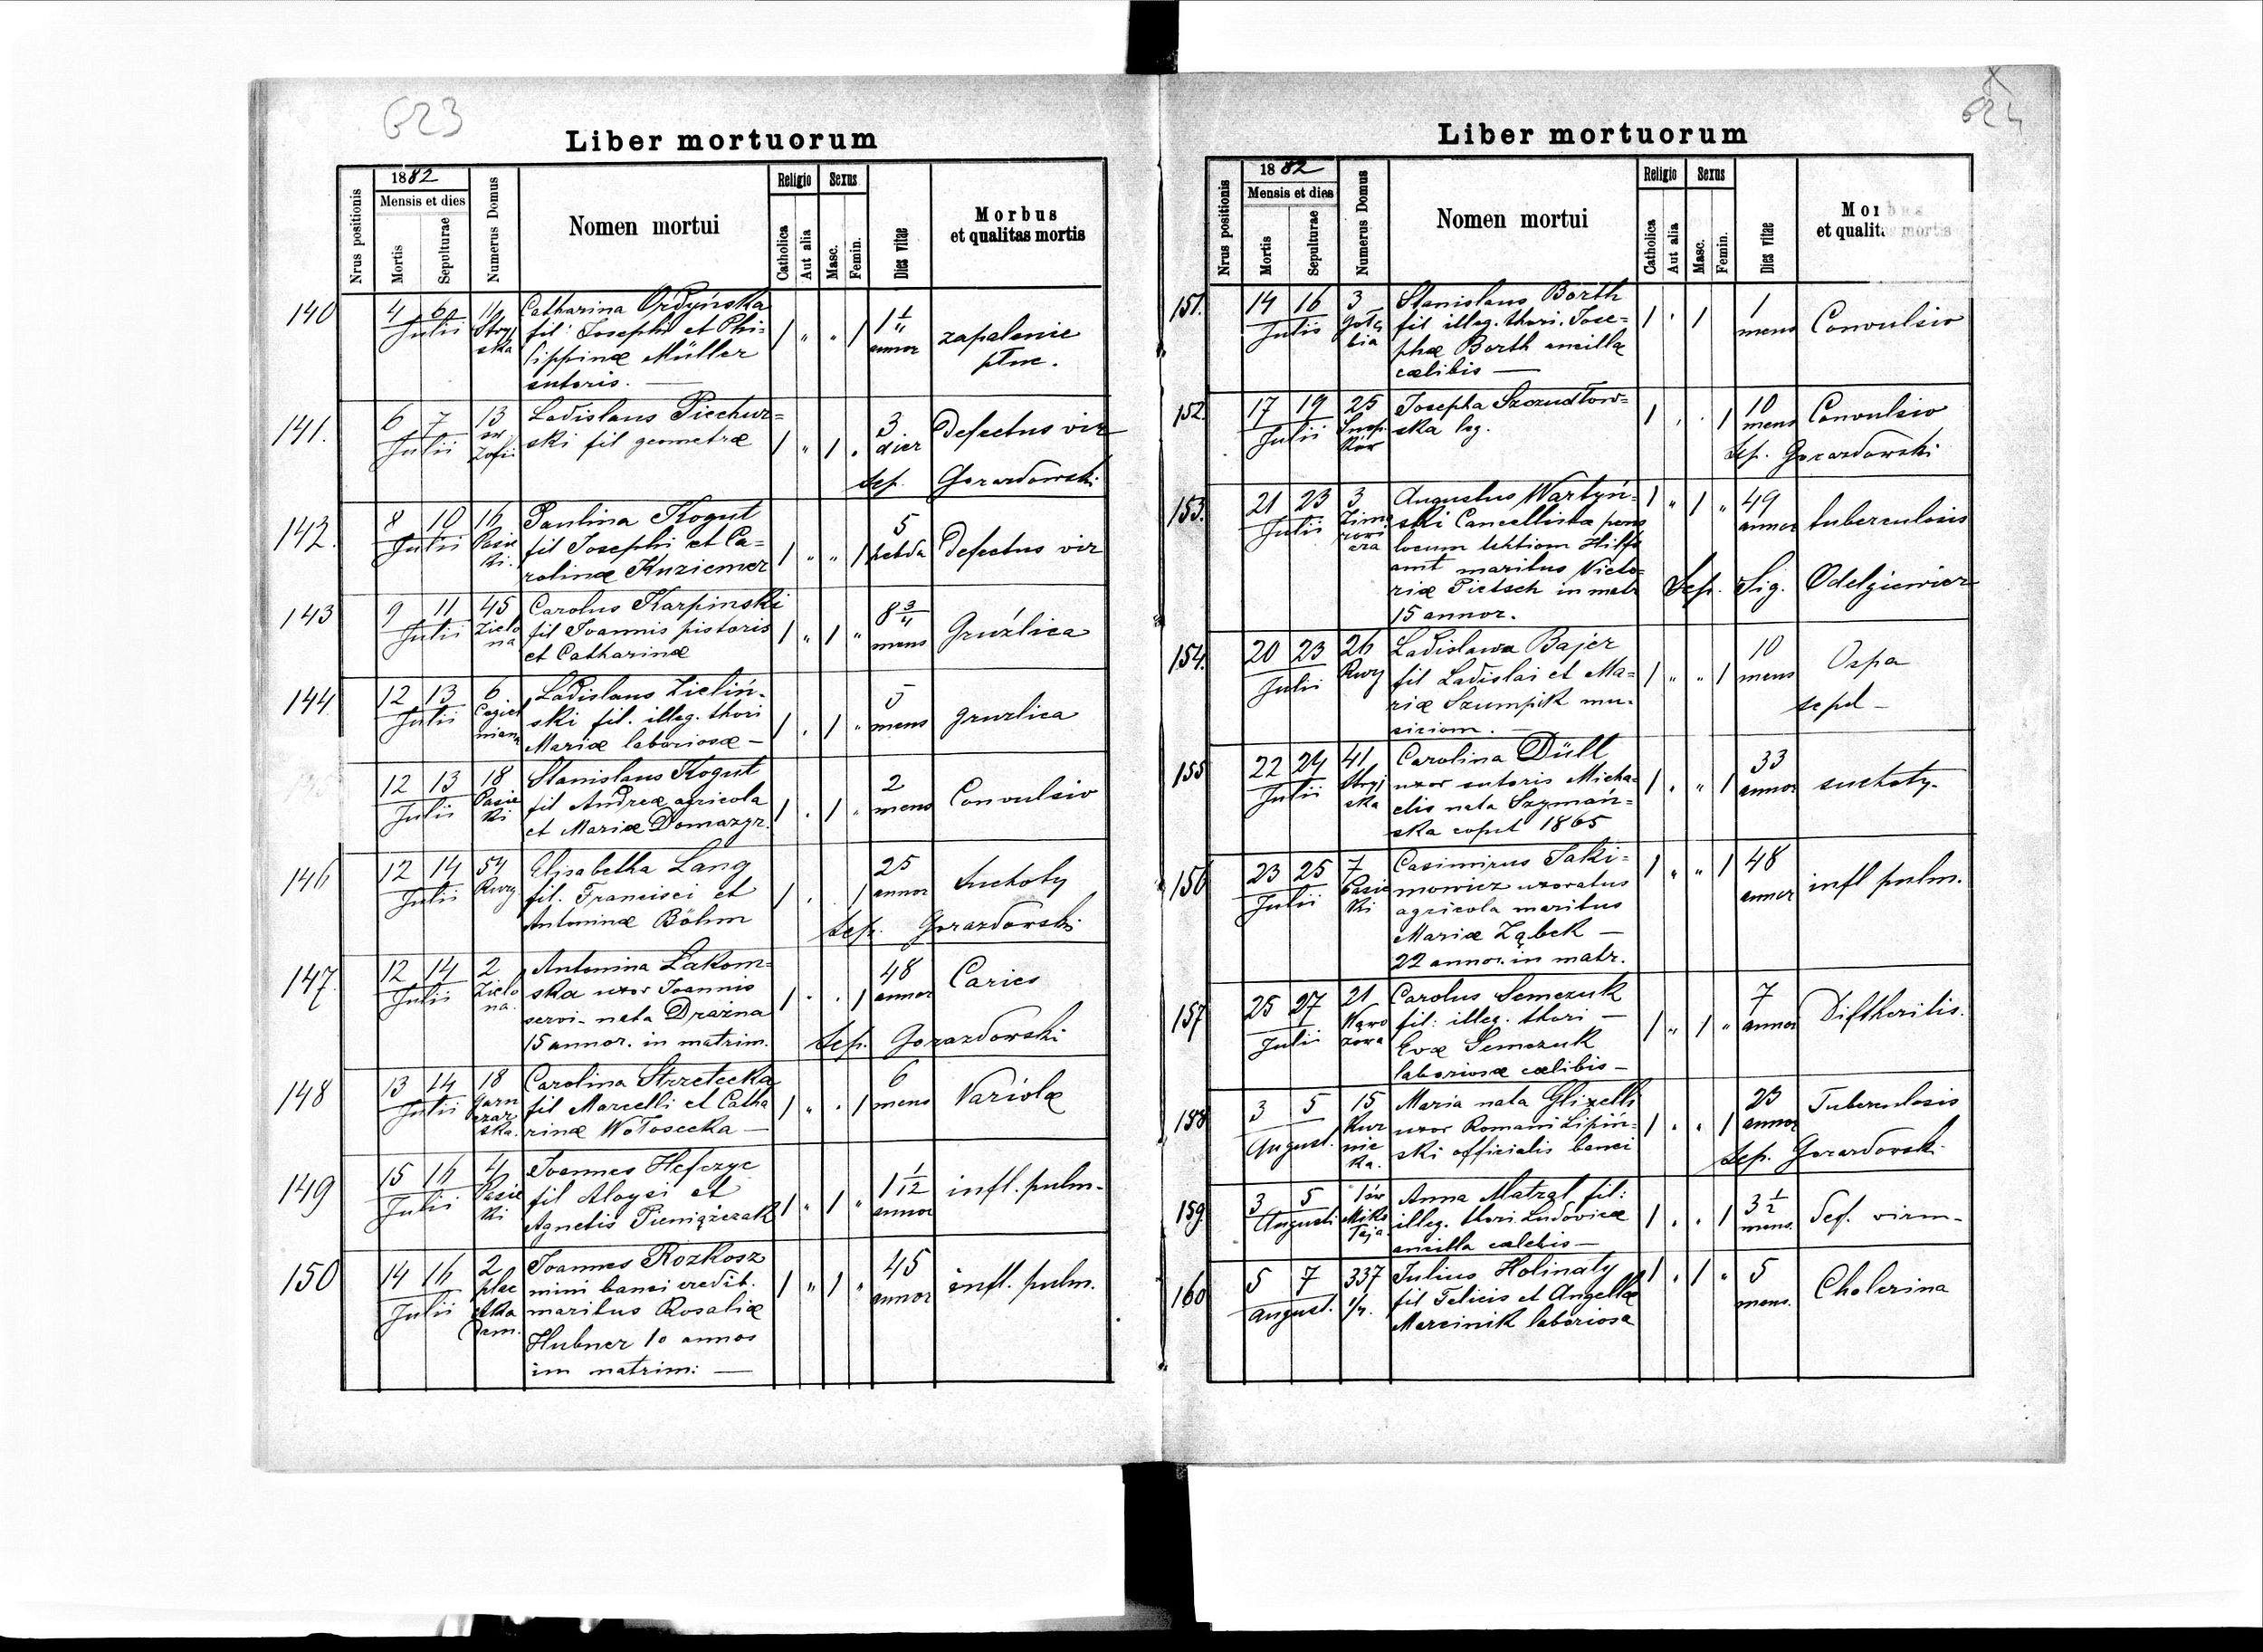 623
Liber mortuorum
Nrus positionis
1882
Mensis et dies
Mortis
Sepulturae
Numerus Domus
Nomen mortui
Religio
Catholica
Aut alia
Sexus
Masc.
Femin.
Dies vitae
Morbus
et qualitas mortis
140
4 6
Julii
Stryj
ska
Catharina Ordyńska
fil: Josephi et Phi=
lippinæ Müller
sutoris. —
1 " " 1
annor
zapalenie
płuc.
141.
6 7
Julii
13
św
Zofii
Ladislaus Piechur=
ski fil geometræ
1 " 1 .
3
dier
Defectus vir
Sep. Gorazdowski
142.
8 10
Julii
16
Pasie
ki.
Paulina Kogut
fil Josephi et Ca=
rolinæ Kuziemer
1 " " 1
5
hebda
Defectus vir
143
9 11
Julii
45
Zielo
na
Carolus Karpinski
fil Joannis pistoris
et Catharinæ
1 " 1 "
8 3/4
mens
Gruźlica
144
12 13
Julii
6
Cegiel
niana
Ladislaus Zieliń-
ski fil. illeg. thori
Mariæ laboriosæ —
1 . 1 "
5
mens
gruzlica
12 13
Julii
18
Pasie
ki
Stanislaus Kogut
fil Andreæ agricola
et Mariæ Domazyr.
1 . 1 "
2
mens
Convulsio
146
12 14
Julii
54
Rury
Elisabetha Lang
fil. Francisci et
Antoninæ Böhm
1 . 1
25
annor
Suchoty
Sep. Gorazdowski
147.
12 14
Julii
2
Zielo
na.
Antonina Łakom=
ska uxor Joannis
servi- nata Drażna
15 annor. in matrim.
1 . . 1
48
annor
Caries
Sep. Gorazdowski
148
13 14
Julii
18
Garn
czar
ska.
Carolina Strzelecka
fil Marcelli et Catha
rinæ Wołosecka —
1 " . 1
6
mens
Variolæ
149
15 16
Julii
4
Pasie
ki
Joannes Hefczyc
fil Aloysi et
Agnetis Pieniążczak
1 " 1 "
1 1/12
annor
infl. pulm.
150
14 16
Julii
2
plac
Joannes Rozkosz
mini banci credit.
maritus Rosaliæ
Hubner 10 annos
im matrim: —
1 " 1 "
45
annor
infl. pulm.
Liber mortuorum
Nrus positionis
1882
Mensis et dies
Mortis
Sepulturae
Numerus Domus
Nomen mortui
Religio
Catholica
Aut alia
Sexus
Masc.
Femin.
Dies vitae
Morbus
et qualitas mortis
151.
14 16
Julii
3
Gołę
bia
Stanislaus Borth
fil illeg. thori. Jose=
phæ Borth ancillæ
cælibis —
1 . 1
1
mens
Convulsio
152.
17 19
Julii
25
Snop
ków
Josepha Szczudłow=
ska leg.
1 . . 1
10
mens
Convulsio
Sep. Gorazdowski
153.
21 23
Julii
3
Zimo
rowi
cza
Augustus Wartyń-
ski Cancellista pens
locum Hilfs
amt maritus Victo=
riæ Pietsch in matr
15 annor.
1 " 1 "
49
annor
tuberculosis
Sep. Sig. Odelgiewicz
154.
20 23
Julii
26
Rury
Ladislava Bajer
fil Ladislai et Ma=
riæ Szumpik mu-
siciom. —
1 " " 1
10
mens
Ospa
sepel —
155
22 24
Julii
41
Stryj
ska
Carolina Düll
uxor sutoris Micha=
elis nata Szymań=
ska copul 1865
1 . " 1
33
annor
suchoty.
156
23 25
Julii
7
Pasie
ki
Casimirus Jaki=
mowicz uxoratus
agricola maritus
Mariæ Ząbek —
22 annor. in matr.
1 " " 1
48
annor
infl pulm.
157
25 27
Julii
21
Wąwo
zowa
Carolus Semczuk
fil: illeg. thori —
Evæ Semczuk
laboriosæ cælibis —
1 " 1 "
7
annor
Diftheritis.
158
3 5
August.
15
Kur
nic
ka.
Maria nata Glixelli
uxor Romani Lipiń=
ski officialis banci
1 . . 1
23
annor
Tuberculosis
Sep. Gorazdowski.
159.
3 5
Augusti
Miko
łaja
Anna Matzal fil:
illeg. thori Ludovicæ
ancilla cælebis —
1 . . 1
3 1/2
mens.
Def. virm-
160
5 7
August.
337
1/4.
Julius Holinaty
fil Felicis et Angellæ
Marcinik laboriosa
1 . 1 "
5
mens.
Cholerina